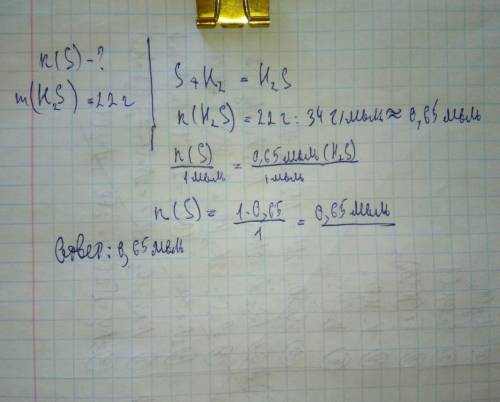 n(S) - ?
m(H₂S) = 22 г
S + H₂ = H₂S
n(H₂S) = 22 г : 34 г/моль ≈ 0,65 моль
n(S) / 1 моль = 0,65 моль (H₂S) / 1 моль
n(S) = 1·0,65 / 1 = 0,65 моль
Ответ: 0,65 моль